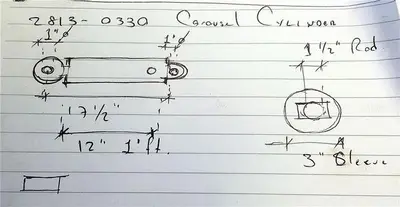 2813-0330 Carousel Cylinder
1" ø 1" ø
1 1/2" Rod
17 1/2"
12" 1 ft.
3" Sleeve